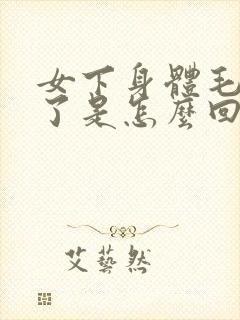 女下身體毛
了是怎麼回
艾藝然